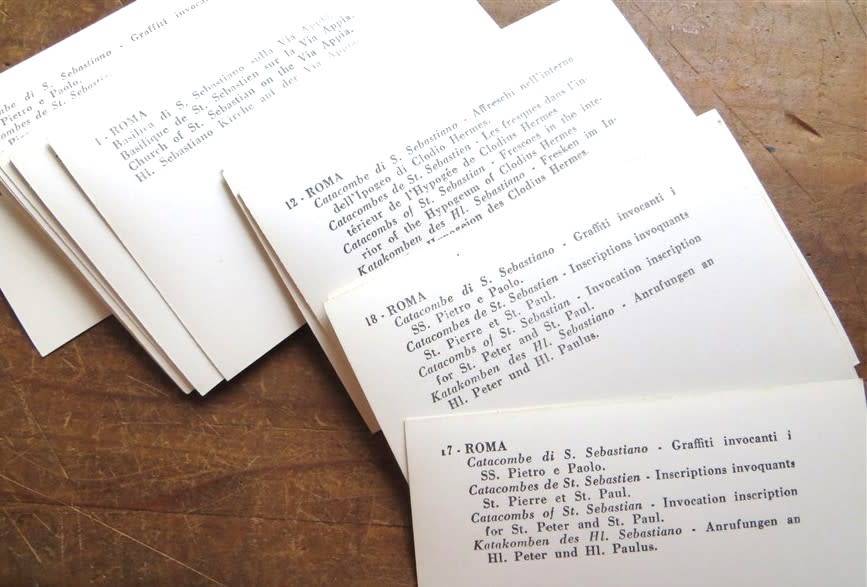 be di S. Sebastiano - Graffiti invoca
Pietro e Paolo.
mbes de St. Sebastie
1 - ROMA
Basilica di S. Sebastiano sulla Via Appia.
Basilique de St. Sebastien sur la Via Appia.
Church of St. Sebastian on the Via Appia.
Hl. Sebastiano Kirche auf der Via Appia.
12 - ROMA
Catacombe di S. Sebastiano - Affreschi nell'interno
dell'Ipogeo di Clodio Hermes.
Catacombes de St. Sebastien - Les fresques dans l'in-
térieur de l'Hypogée de Clodius Hermes
Catacombs of St. Sebastian - Frescoes in the inte-
rior of the Hypogeum of Clodius Hermes
Katakomben des Hl. Sebastiano - Fresken im In-
des Clodius Hermes.
18 - ROMA
Catacombe di S. Sebastiano - Graffiti invocanti i
SS. Pietro e Paolo.
Catacombes de St. Sebastien - Inscriptions invoquants
St. Pierre et St. Paul.
Catacombs of St. Sebastian - Invocation inscription
for St. Peter and St. Paul.
Katakomben des Hl. Sebastiano - Anrufungen an
Hl. Peter und Hl. Paulus.
17 - ROMA
Catacombe di S. Sebastiano - Graffiti invocanti i
SS. Pietro e Paolo.
Catacombes de St. Sebastien - Inscriptions invoquants
St. Pierre et St. Paul.
Catacombs of St. Sebastian - Invocation inscription
for St. Peter and St. Paul.
Katakomben des Hl. Sebastiano - Anrufungen an
Hl. Peter und Hl. Paulus.